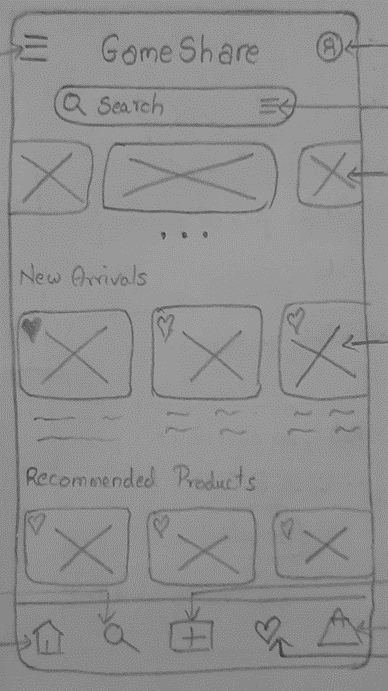 GameShare
Search
New Arrivals
Recommended Products